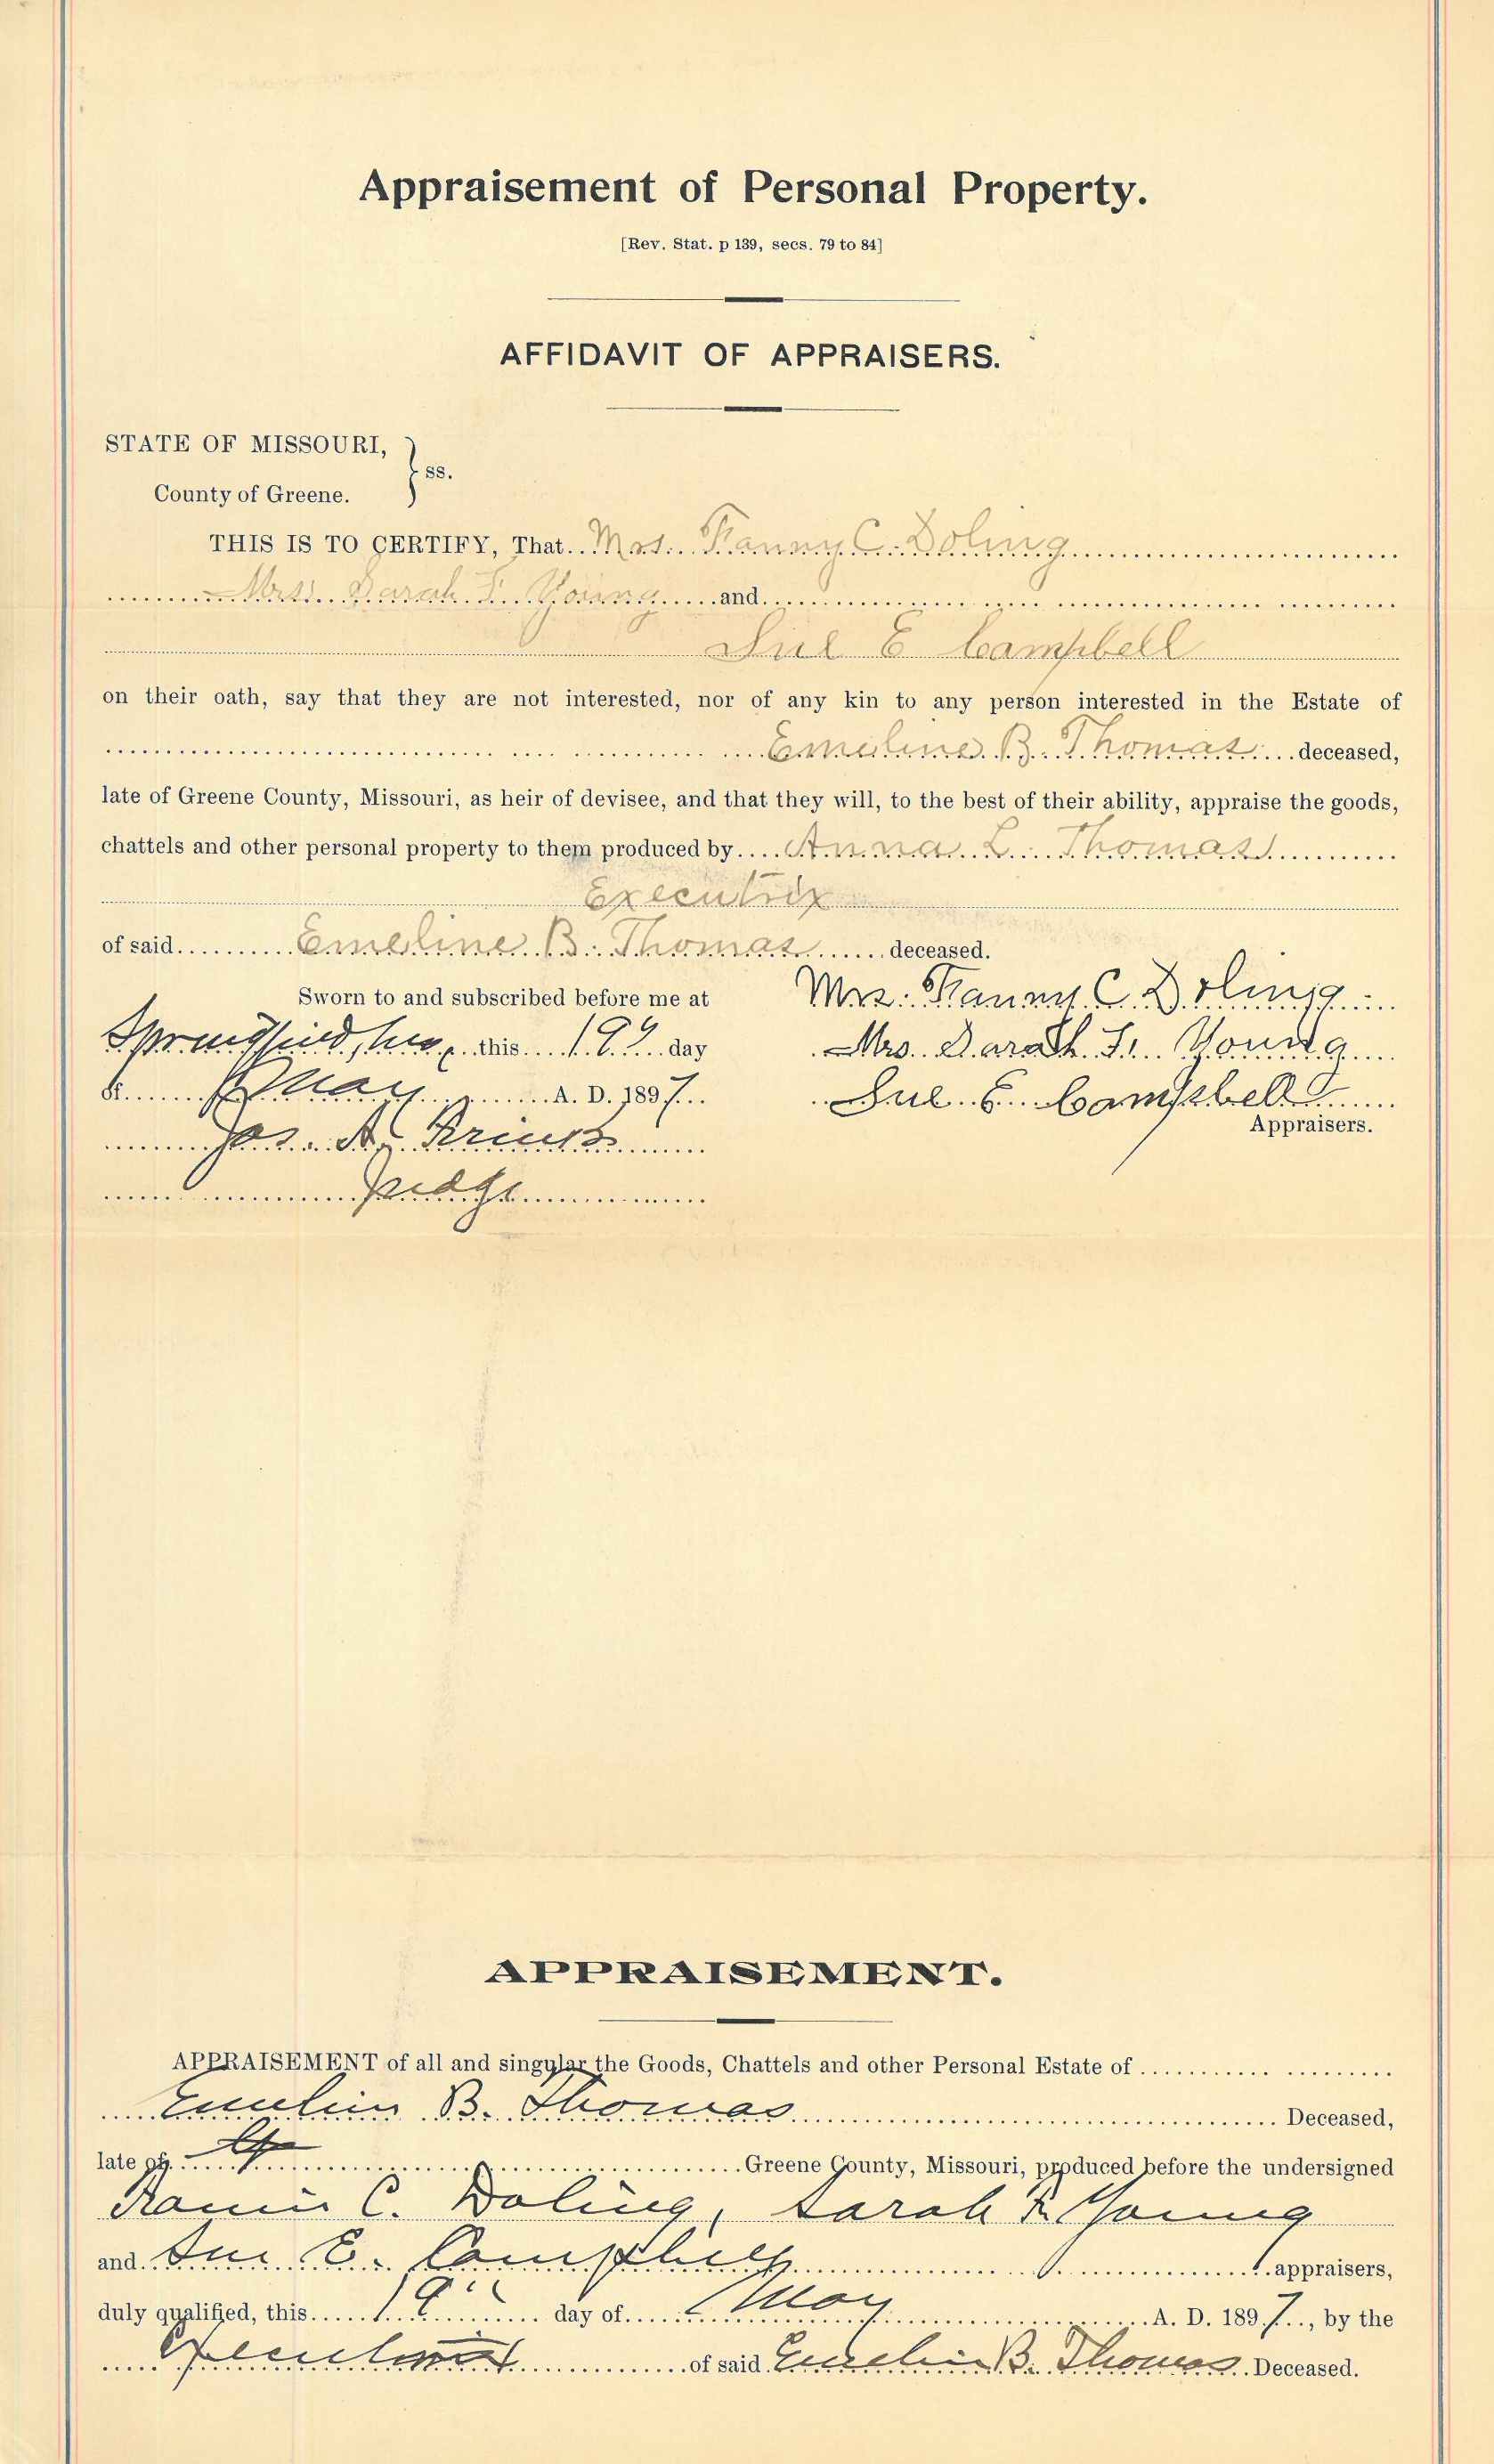 Appraisement of Personal Property.
[Rev. Stat. p 139, secs. 79 to 84]
AFFIDAVIT OF APPRAISERS.
STATE OF MISSOURI,
ss.
County of Greene.
THIS IS TO CERTIFY, That Mrs. Fanny C. Doling
Mrs. Sarah F. Young and
Sue E Campbell
on their oath, say that they are not interested, nor of any kin to any person interested in the Estate of
Emeline B. Thomas deceased,
late of Greene County, Missouri, as heir of devisee, and that they will, to the best of their ability, appraise the goods,
chattels and other personal property to them produced by Anna L. Thomas
Executrix
of said Emeline B. Thomas deceased.
Sworn to and subscribed before me at
Springfield, Mo. this 19" day
of May A. D. 1897
Jos. A.
Judge
Mrs. Fanny C. Doling
Mrs. Sarah F. Young
Sue E. Campbell
Appraisers.
APPRAISEMENT.
APPRAISEMENT of all and singular the Goods, Chattels and other Personal Estate of
Emeline B. Thomas Deceased,
late of Greene County, Missouri, produced before the undersigned
Fannie C. Doling, Sarah F. Young
and Sue E. Campbell appraisers,
duly qualified, this 19" day of May A. D. 1897, by the
Executrix of said Emeline B. Thomas Deceased.